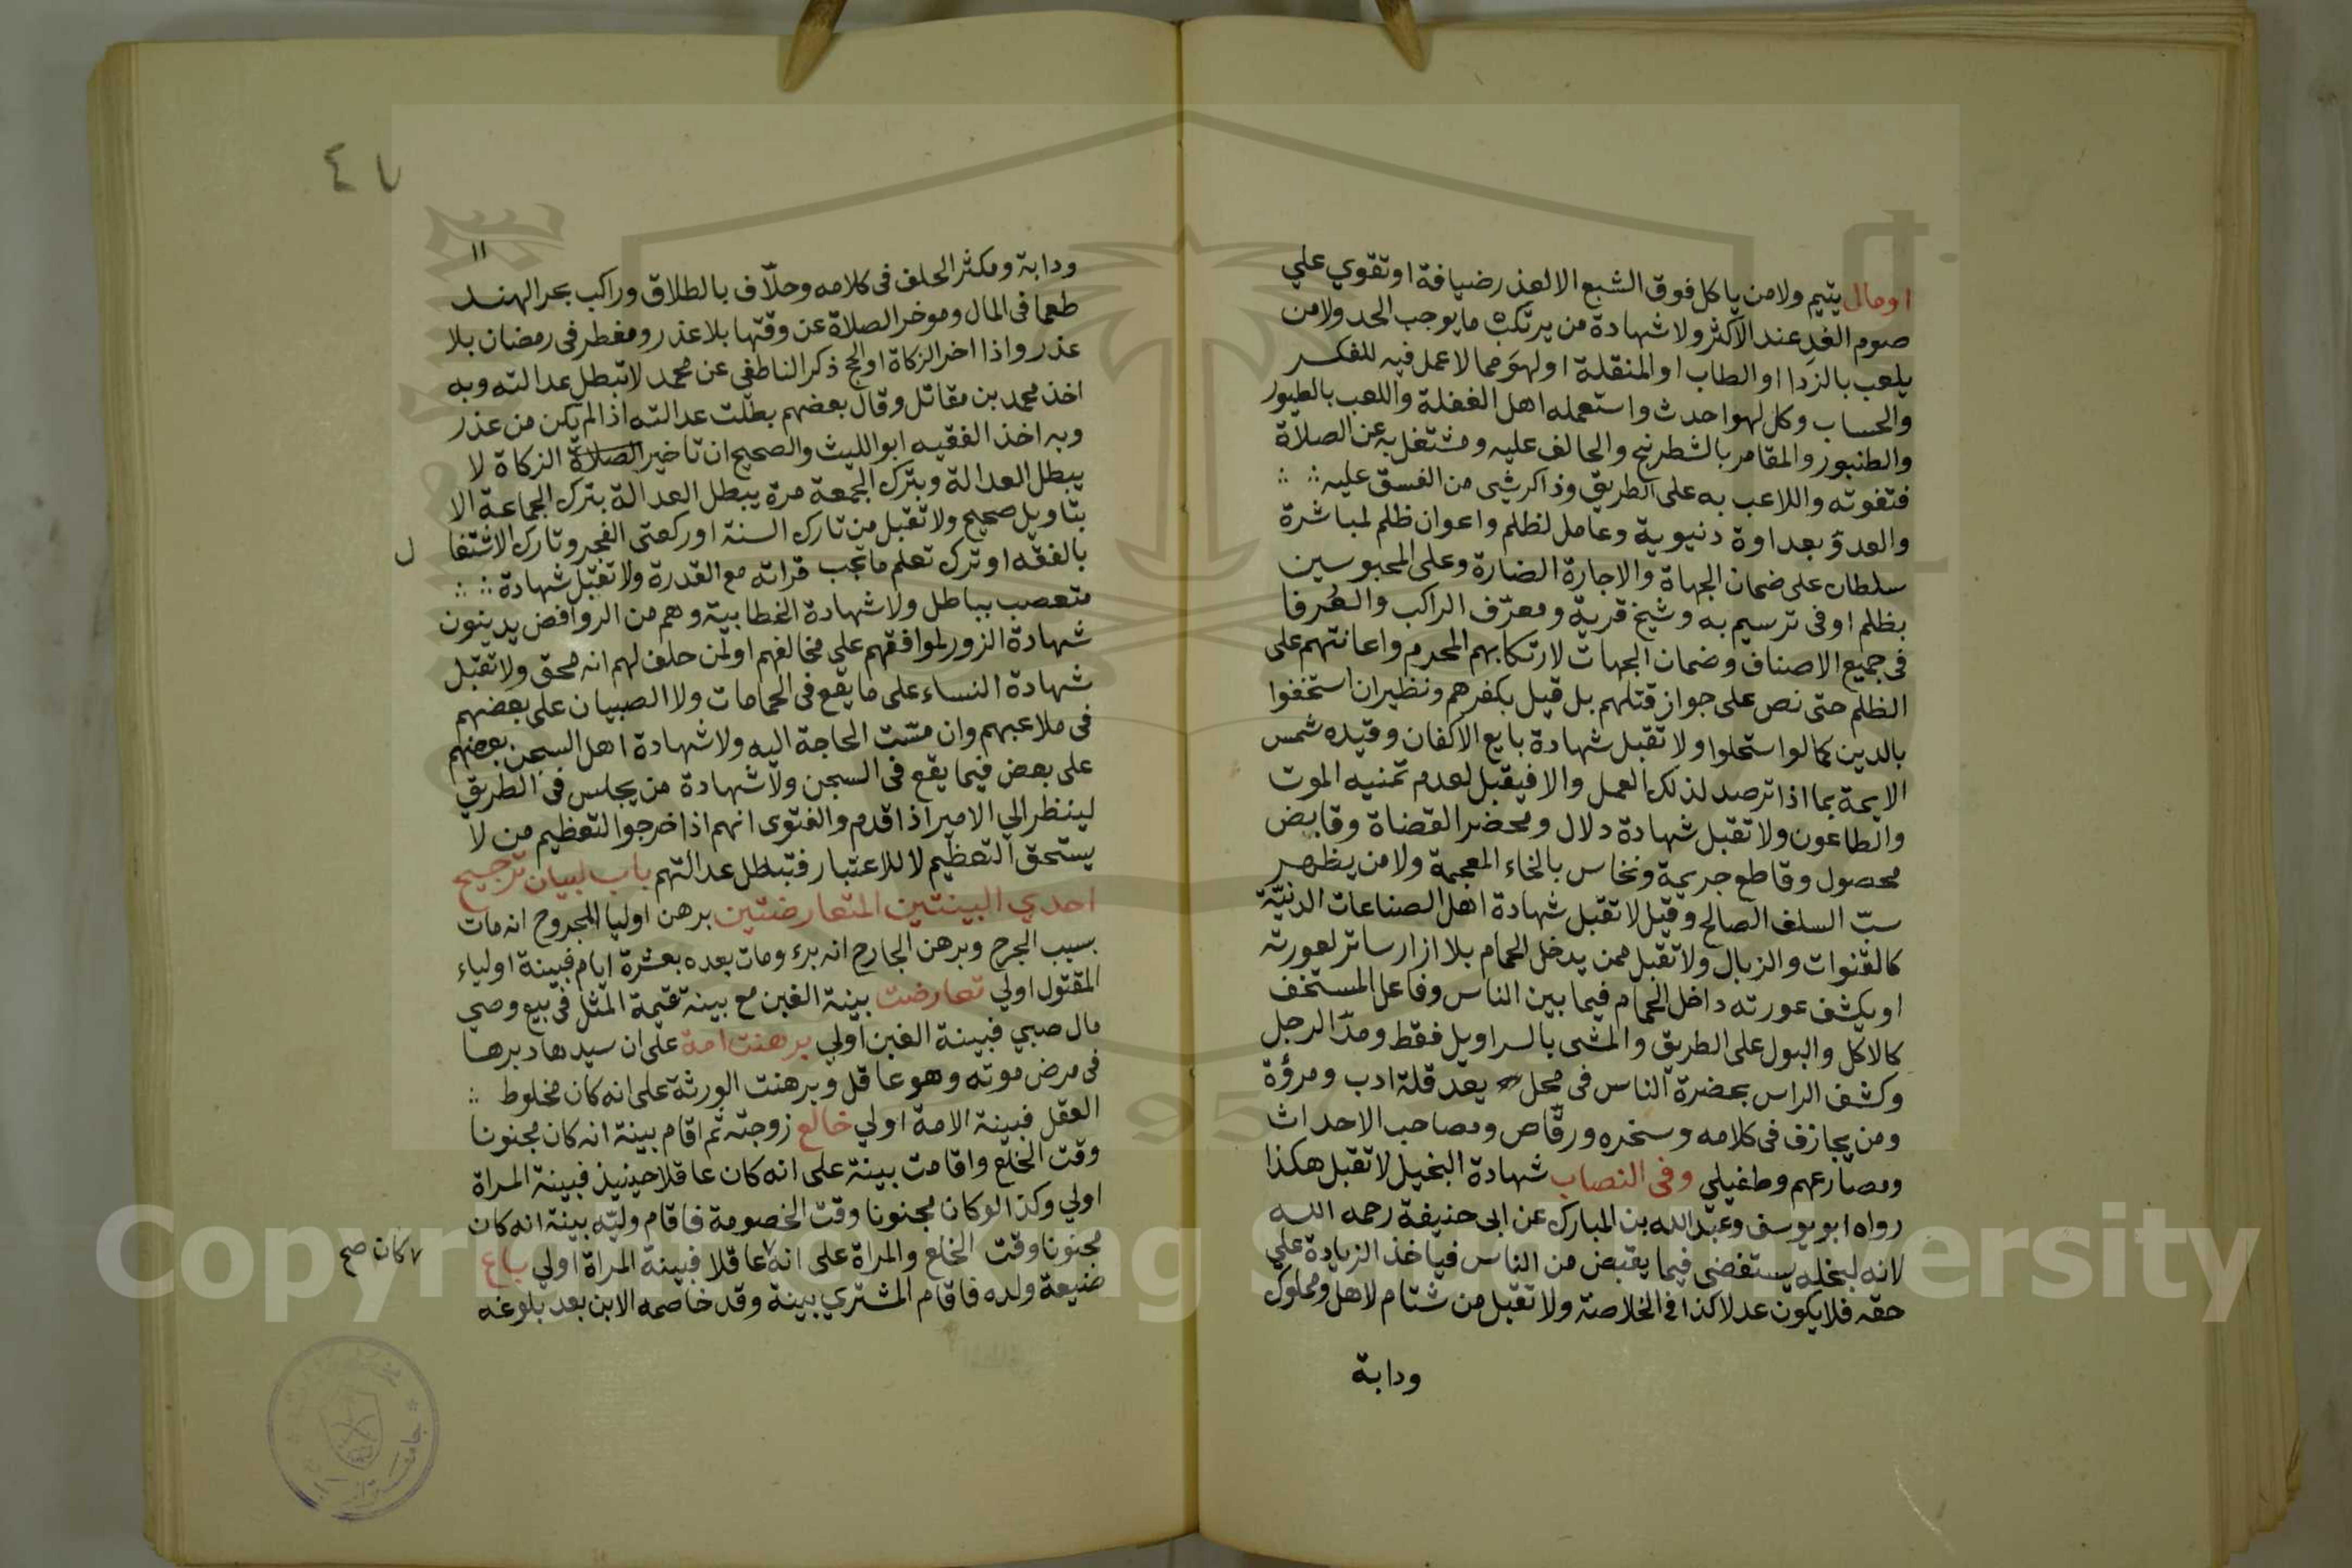 او مال يتيم ولا من ياكل فوق الشبع الا لعذر ضيافة او تقوي علي
صوم الغد عند الاكثر ولا شهادة من يرتكب ما يوجب الحد ولا من
يلعب بالنردا او الطاب او المنقلة او لهو مما لا عمل فيه للفكر
والحساب وكل لهو احدث واستعمله اهل الغفلة واللعب بالطيور
والطنبور والمقامر بالشطرنج والحالف عليه ومشتغل به عن الصلاة
فتفوته واللاعب به على الطريق وذاكر شي من الفسق عليه
والعدو بعداوة دنيوية وعامل لظلم واعوان ظلم لمباشرة
سلطان على ضمان الجهاة والاجارة الضارة وعلى المحبوسين
بظلم او فى ترسيم به وشيخ قرية ومعرّف الراكب والعُرفا
فى جميع الاصناف وضمان الجهات لارتكابهم المحرم واعانتهم على
الظلم حتى نص على جواز قتلهم بل قيل بكفرهم ونظيران استخفوا
بالدين كما لو استحلوا ولا تقبل شهادة بايع الاكفان وقيده شمس
الايمة بما اذا ترصد لذلك العمل والا فيقبل لعدم تمنيه الموت
والطاعون ولا تقبل شهادة دلال ومحضر القضاة وقابض
محصول وقاطع جريمة ونخاس بالخاء المعجمة ولا من يظهر
سبّ السلف الصالح وقيل لا تقبل شهادة اهل الصناعات الدنيّة
كالقنوات والزبال ولا تقبل ممن يدخل الحمام بلا ازار ساتر لعورته
او يكشف عورته داخل الحمام فيما بين الناس وفاعل المستخف
كالاكل والبول على الطريق والمشى بالسراويل فقط ومدّ الرجل
وكشف الراس بحضرة الناس فى محل يعد قلة ادب ومرؤة
ومن يجازف فى كلامه وسخره ورقّاص ومصاحب الاحداث
ومصارعهم وطفيلي وفى النصاب شهادة البخيل لا تقبل هكذا
رواه ابو يوسف وعبد الله بن المبارك عن ابى حنيفة رحمه الله
لانه لبخله يستقضى فيما يقبض من الناس فياخذ الزيادة علي
حقه فلا يكون عدلا كذا فى الخلاصة ولا تقبل من شتام لاهل ومملوك
ودابة
٤٧
١١
ودابة ومكثر الحلف فى كلامه وحلّاف بالطلاق وراكب بحر الهند
طعما فى المال وموخر الصلاة عن وقتها بلا عذر ومفطر فى رمضان بلا
عذر واذا اخر الزكاة او الحج ذكر الناطفي عن محمد لا تبطل عدالته وبه
اخذ محمد بن مقاتل وقال بعضهم بطلت عدالته اذا لم يكن من عذر
وبه اخذ الفقيه ابو الليث والصحيح ان تاخير الصلاة الزكاة لا
يبطل العدالة وبترك الجمعة مرة يبطل العدالة بترك الجماعة الا
بتاويل صحيح ولا تقبل من تارك السنة او ركعتى الفجر وتارك الاشتغا ل
بالفقه او ترك تعلم ما تجب قراته مع القدرة ولا تقبل شهادة
متعصب بباطل ولا شهادة الخطابية وهم من الروافض يدينون
شهادة الزور لموافقهم على مخالفهم او لمن حلف لهم انه محق ولا تقبل
شهادة النساء على ما يقع فى الحمامات ولا الصبيان على بعضهم
فى ملاعبهم وان مسّت الحاجة اليه ولا شهادة اهل السجن بعضهم
على بعض فيما يقع فى السجن ولا شهادة من يجلس فى الطريق
لينظر الي الامير اذا قدم والفتوى انهم اذا خرجوا لتعظيم من لا
يستحق التعظيم لا للاعتبار فتبطل عدالتهم باب لبيان ترجيح
احدي البينتين المتعارضتين برهن اوليا المجروح انه مات
بسبب الجرح وبرهن الجارح انه برء ومات بعده بعشرة ايام فبينة اولياء
المقتول اولي تعارضت بينة الغبن مع بينة قيمة المثل فى بيع وصي
مال صبي فبينة الغبن اولي برهنت امة على ان سيدها دبرها
فى مرض موته وهو عاقل وبرهنت الورثة على انه كان مخلوط
العقل فبينة الامة اولي خالع زوجته ثم اقام بينة انه كان مجنونا
وقت الخلع واقامت بينة على انه كان عاقلا حينيذ فبينة المراة
اولي وكذا لو كان مجنونا وقت الخصومة فاقام وليّه بينة انه كان
مجنونا وقت الخلع والمراة على انه عاقلا فبينة المراة اولي باع
كان صح
ضيعة ولده فاقام المشتري بينة وقد خاصمه الابن بعد بلوغه
Copyright © King Saud University